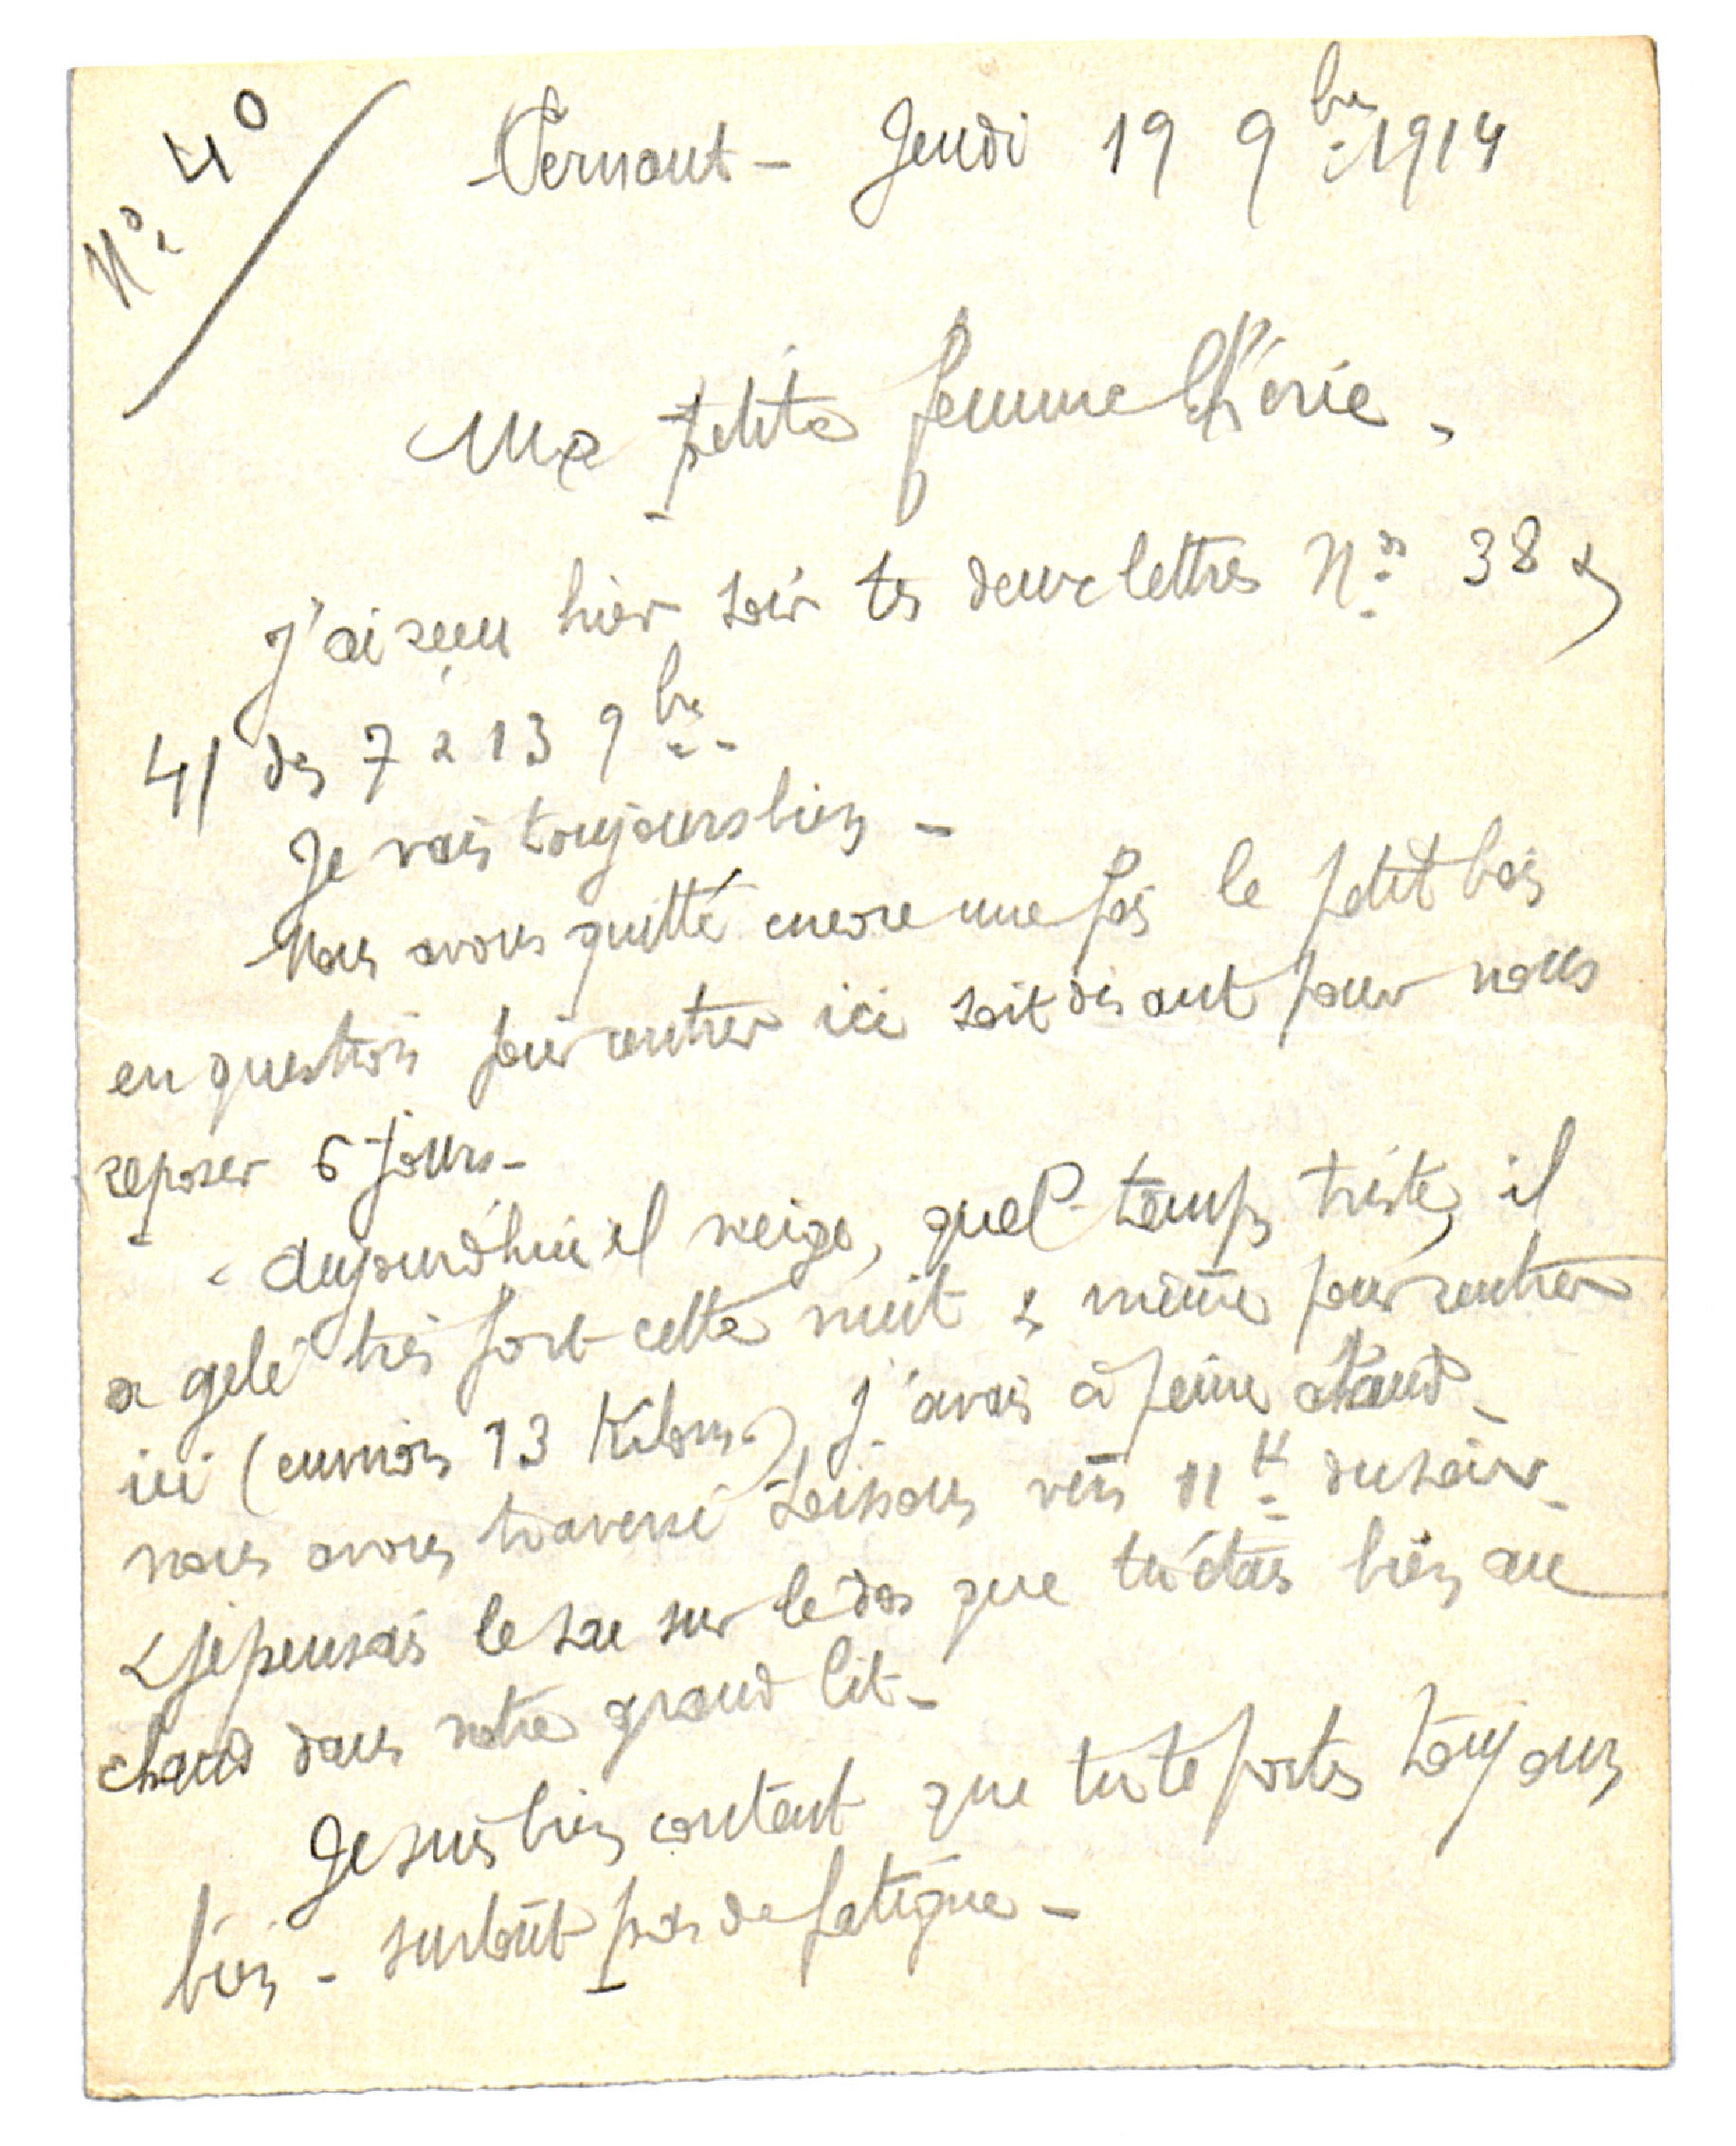 N° 40
Pernant - Jeudi 19 9bre 1914
Ma petite femme Chérie,
J'ai reçu hier soir tes deux lettres Nos 38 &
41 des 7 & 13 9bre -
Je vais toujours bien -
Nous avons quitté encore une fois le petit bois
en question pour rentrer ici soit disant pour nous
reposer 6 jours -
- Aujourd'hui il neige, quel temps triste, il
a gelé très fort cette nuit & même pour rentrer
ici (environ 13 Kilom.) j'avais à peine chaud -
nous avons traversé Soissons vers 11 H du soir -
& je pensais le sac sur le dos que tu étais bien au
chaud dans notre grand lit -
Je suis bien content que tu te portes toujours
bien - surtout pas de fatigue -